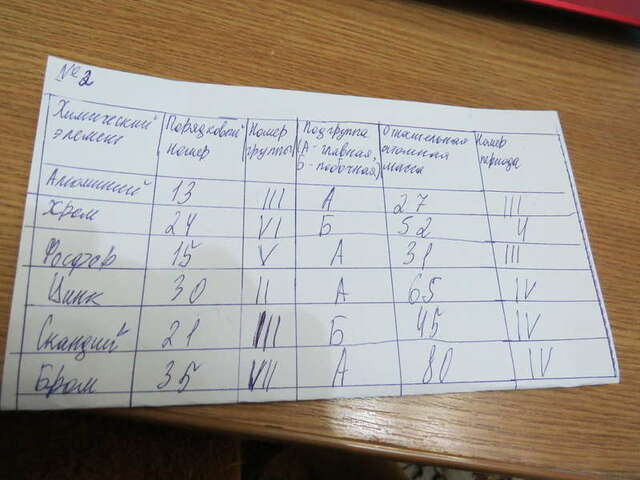 №2
Химический элемент Порядковый номер Номер группы Подгруппа (А-главная, Б-побочная) Относительная атомная масса Номер периода
Алюминий 13 III А 27 III
Хром 24 VI Б 52 4
Фосфор 15 V А 31 III
Цинк 30 II А 65 IV
Скандий 21 III Б 45 IV
Бром 35 VII А 80 IV